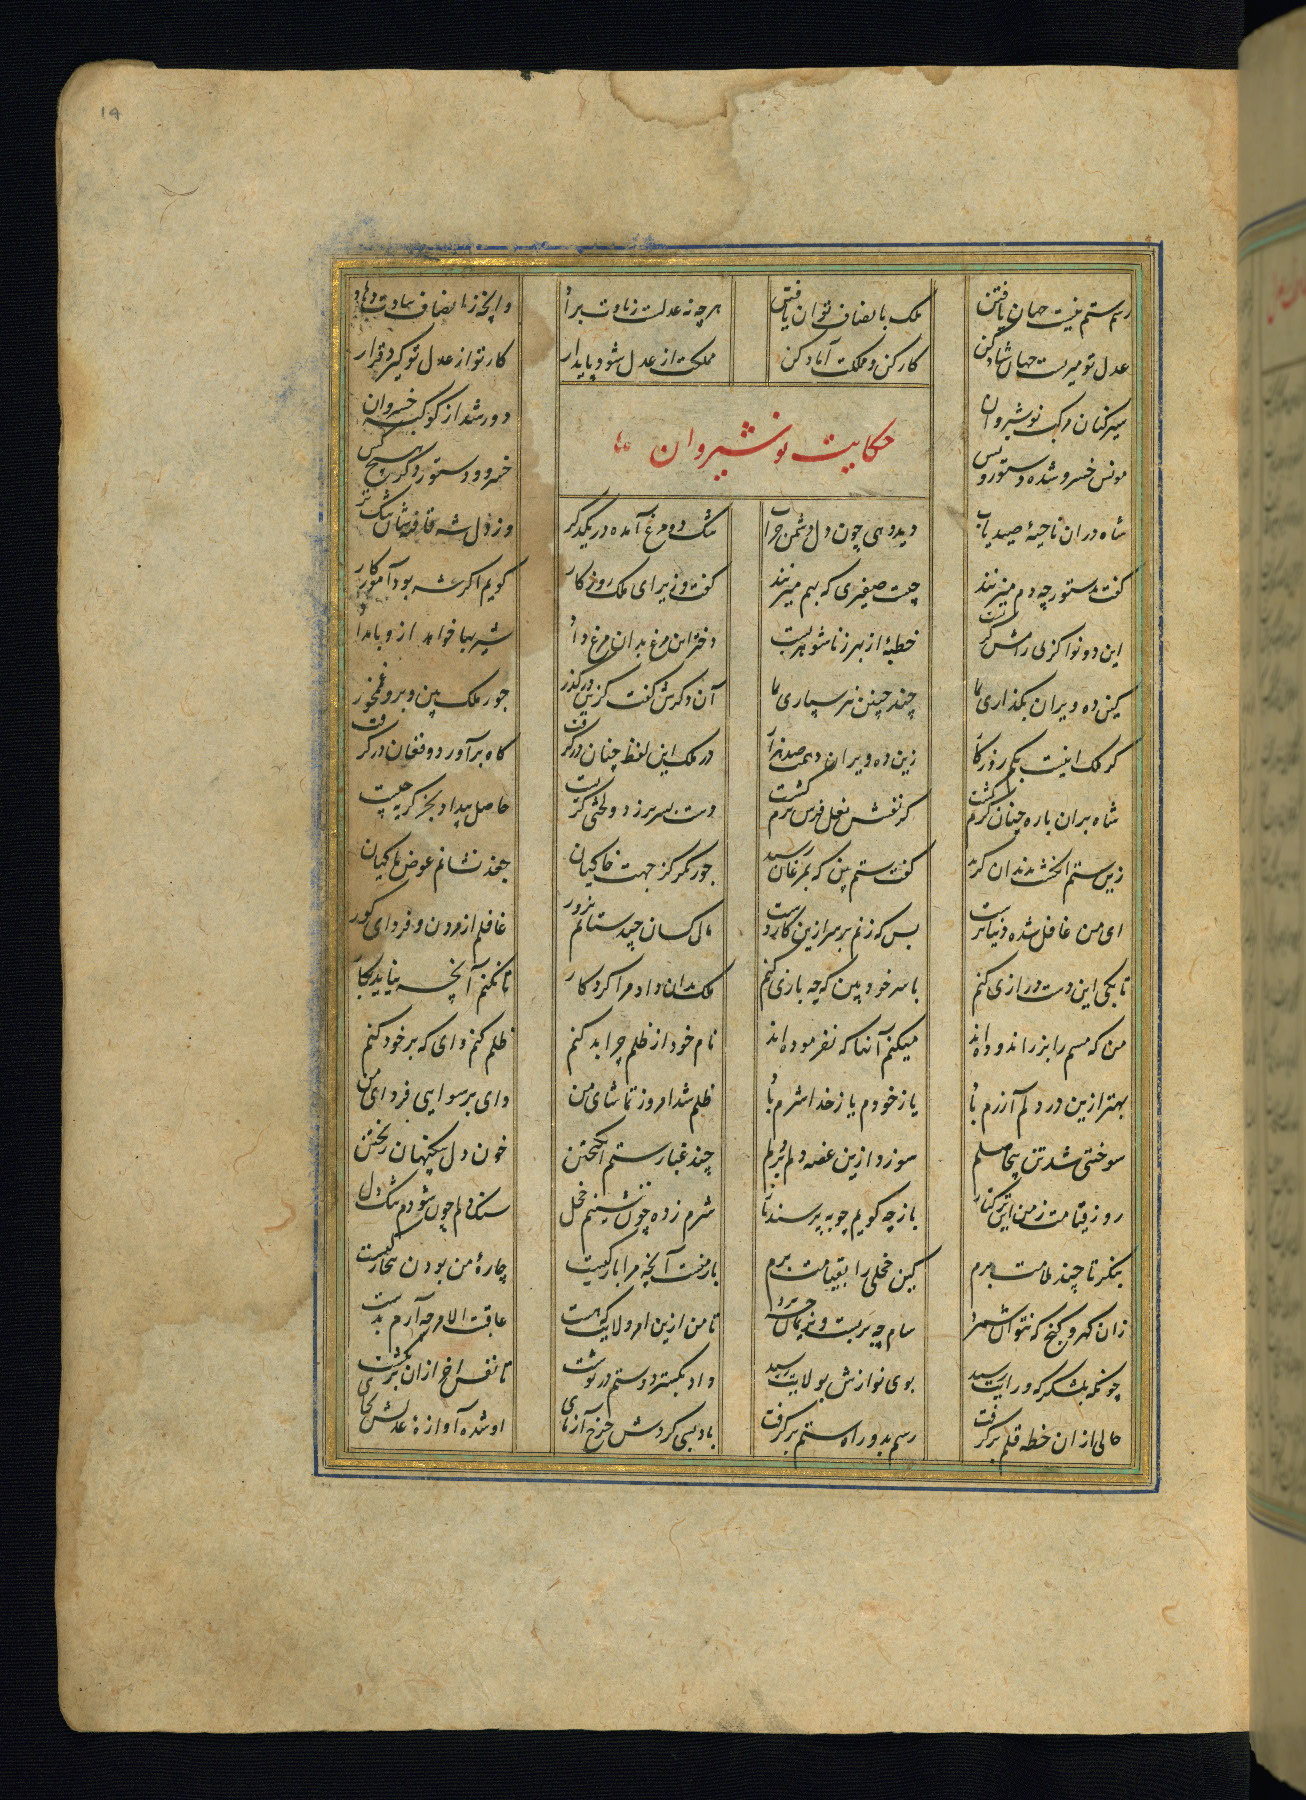 رسم ستم نیست جهان یافتن ملک بانصاف توان یافتن هرچه نه عدلست وانچه نه انصاف ببادت دهد
عدل تو میریست جهان شاد کن کار کن و مملکت آباد کن مملکت از عدل شود پایدار کار تو از عدل تو گیرد قرار
سیر کنان مرکب نوشیروان دور شد از کوکبه خسروان
مونس خسرو شده دستور و بس خسرو و دستور و دگر هیچ کس
حکایت نوشیروان
شاه دران ناحیه صید یاب دید دهی چون دل دشمن خراب تنگ دو مرغ آمده در یکدگر وز دل شه قافیه شان تنگ تر
گفت بدستور چه دم میزنند چیست صفیری که بهم میزنند گفت وزیر ای ملک روزگار گویم اگر شه بود آموزگار
این دو نوا نز پی رامش گریست خطبه از بهر زناشوهریست دختر این مرغ بدان مرغ داد شیر بها خواهد ازو بامداد
کین ده ویران بگذاری بما چند چنین نیز سپاری بما آن دگرش گفت کزین درگذر جور ملک بین و برو غم مخور
گر ملک اینست روزگار زین ده ویران دهمت صد هزار در ملک این لفظ چنان درگرفت کاه برآورد و فغان درگرفت
شاه بران باره چنان گرم گشت کز نفسش نعل فرس نرم گشت دست بسر بر زد و لختی گریست حاصل بیداد بجز گریه چیست
زین ستم انگشت بدندان گزید گفت ستم بین که بمرغان رسید جور نگر کز جهت خاکیان جغد نشانم عوض ماکیان
ای من غافل شده دنیا پرست بس که زنم بر سر ازین کار دست مال کسان چند ستانم بزور غافلم از مردن و فردای گور
تا بکی این دست درازی کنم با سر خود بین که چه بازی کنم ملک بدان داد مرا کردگار تا نکنم آنچه نیاید بکار
من که مسم را بزر اندوده اند میکنم آنها که نفرموده اند نام خود از ظلم چرا بد کنم ظلم کنم وای که بر خود کنم
بهتر ازین در دلم آزرم باد یا ز خودم یا ز خدا شرم باد ظلم شد امروز تماشای من وای برسوایی فردای من
سوختنی شد تن بیحاصلم سوزد ازین غصه دلم بر دلم چند غبار ستم انگیختن خون دل بیگنهان ریختن
روز قیامت ز من این ترکتاز باز چه گویم چو بپرسند باز شرم زده چون ننشینم خجل سنگ دلم چون نشوم تنگ دل
بنگر تا چند ملامت برم کین خجلی را بقیامت برم بار منست آنچه مرا بارگیست چارهٔ من بودن بیچارگیست
زان گهر و گنج که نتوان شمرد سام چه بربست و نریمان چه برد تا من ازین امر و ولایت که هست عاقبت الامر چه آرم بدست
چونکه بلشکرگه و رایت رسید بوی نوازش بولایت رسید داد بگسترد و ستم درنوشت تا نفس آخر ازان برنگشت
حالی ازان خطه قلم برگرفت رسم بد و راه ستم برگرفت بسی گردش چرخ آزمای او شده آوازهٔ عدلش بجای